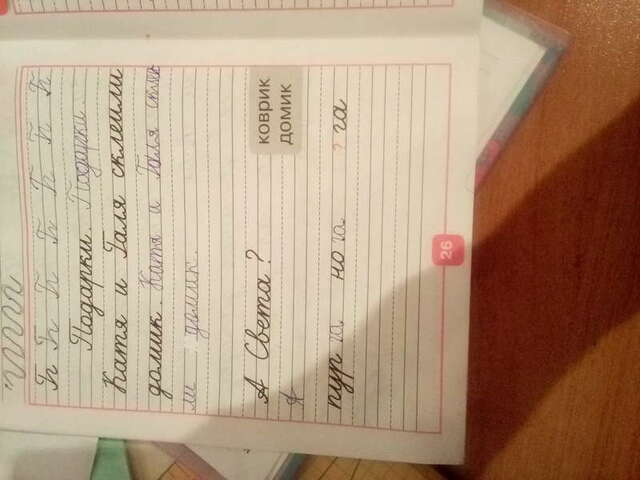 Подарки. Подарки.
Катя и Галя склеили
домик. Катя и Галя склеи
ли домик.
коврик
домик
А Света?
А
пур га. но га. ? га
26